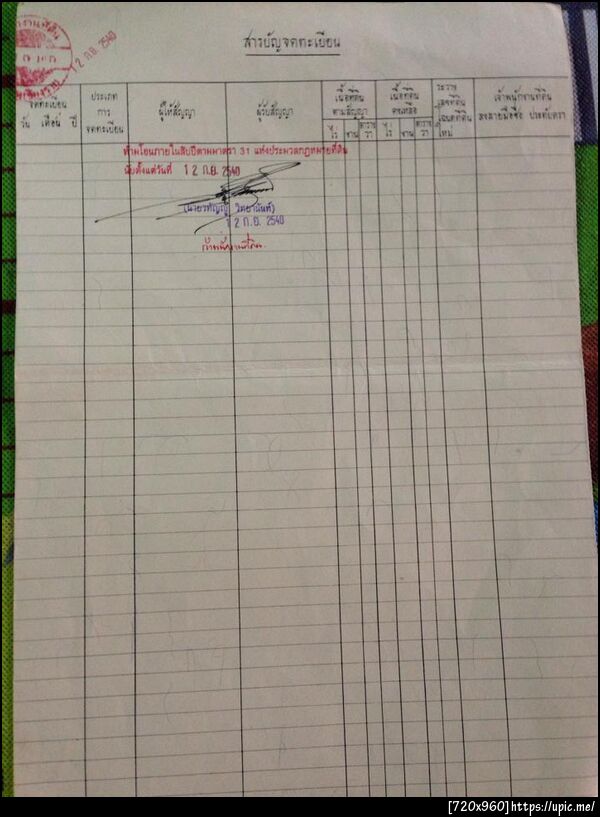 สารบัญจดทะเบียน
๑๒ ก.ย. 2540
จดทะเบียน
วัน เดือน ปี
ประเภท
การ
จดทะเบียน
ผู้ให้สัญญา
ผู้รับสัญญา
เนื้อที่ดิน
ตามสัญญา
ไร่ งาน ตาราง
วา
เนื้อที่ดิน
คงเหลือ
ไร่ งาน ตาราง
วา
ระวาง
เลขที่ดิน
โฉนดที่ดิน
ใหม่
เจ้าพนักงานที่ดิน
ลงลายมือชื่อ ประทับตรา
ห้ามโอนภายในสิบปีตามมาตรา 31 แห่งประมวลกฎหมายที่ดิน
นับตั้งแต่วันที่ 12 ก.ย. 2540
วิทยานันท์)
12 ก.ย. 2540
เจ้าพนักงานที่ดิน
[720x960]https://upic.me/